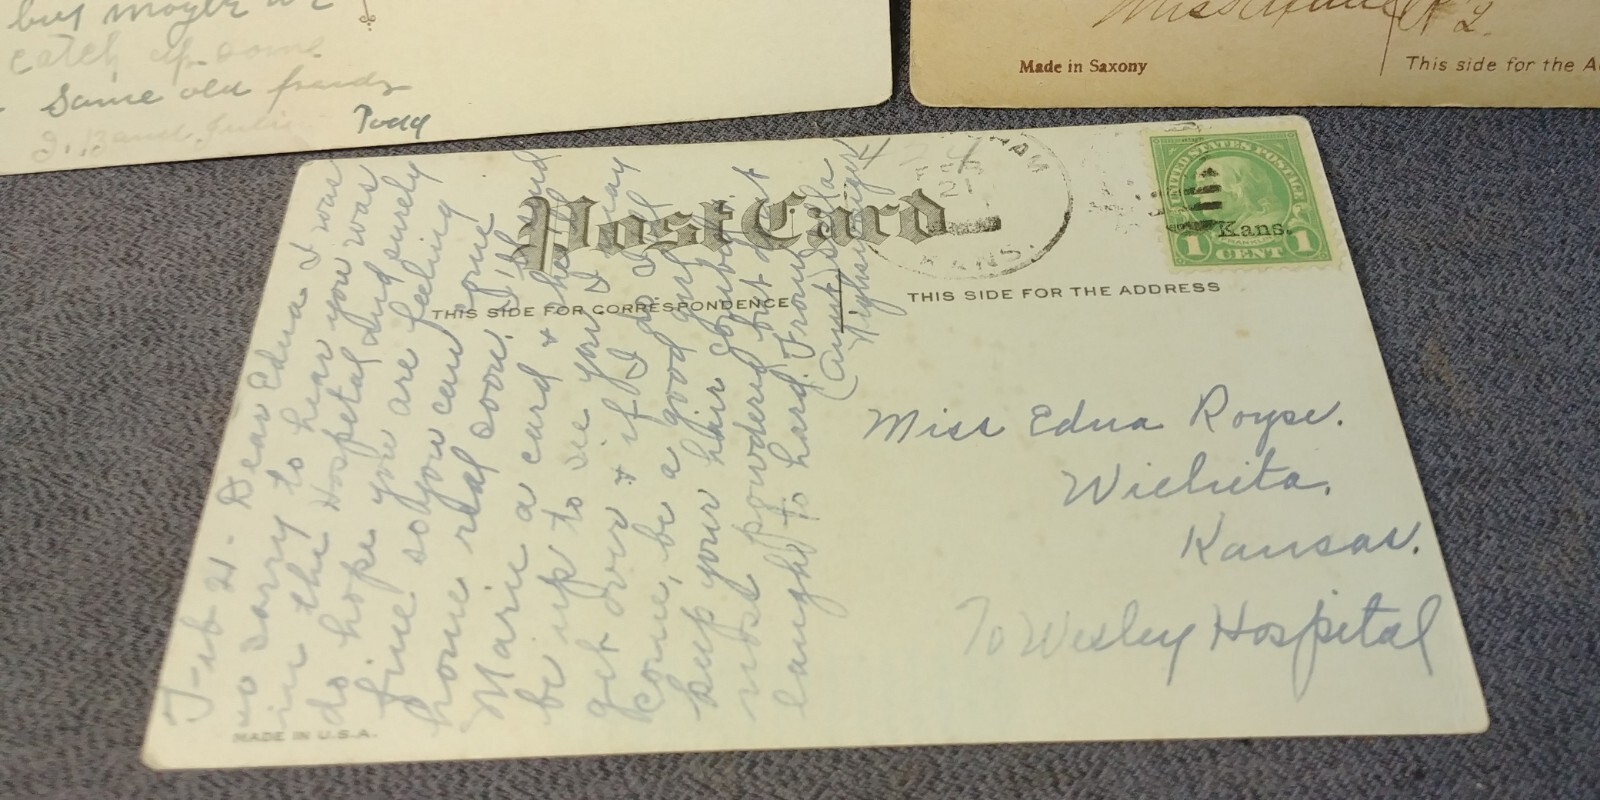 but maybe we
catch up some
Same old friends
Todd
Made in Saxony
This side for the A
Post Card
THIS SIDE FOR CORRESPONDENCE
THIS SIDE FOR THE ADDRESS
HAM
FEB
21
KANS.
UNITED STATES POSTAGE
Kans.
FRANKLIN
1 CENT 1
Feb-21- Dear Edna I was
so sorry to hear you was
in the Hospetal and surely
do hope you are feeling
fine so you can come
home real soon. I'll send
Marie a card & she'll
be up to see you I may
get over & if I do I'll
come, be a good girl
keep your hair combed
nose powdered but not
laught to hard. From
(Aunt)
Miss Edna Royse.
Wichita.
Kansas.
To Wesley Hospetal
MADE IN U.S.A.